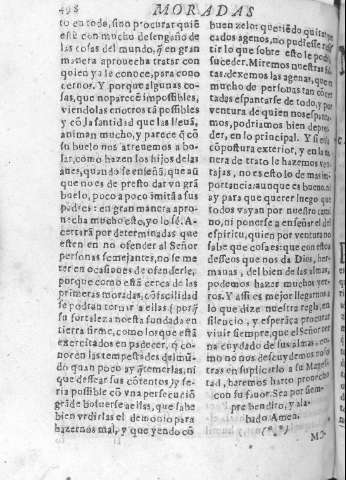 498 MORADAS
to en todo, sino procurar quiẽ
esté con mucho desengaño de
las cosas del mundo, q̃ en gran
manera aprouecha tratar con
quien ya le conoce, para cono
cernos. Y porque algunas co-
sas, que nos parecẽ impossibles,
viendolas en otros tã possibles
y cõ la santidad que las lleuã,
animan mucho, y parece q̃ cõ
su buelo nos atreuemos a bo-
lar, como hazen los hijos de las
aues, quando se enseñã, que aũ
que no es de presto dar vn grã
buelo, poco a poco imitã a sus
padres: en gran manera apro-
uecha mucho esto, yo lo sé. A-
certarã por determinadas que
esten en no ofender al Señor
personas semejantes, no se me
ter en ocasiones de ofenderle,
porque como està cerca de las
primeras moradas, cõ facilidad
se podran tornar a ellas, porq̃
su fortaleza no esta fundada en
tierra firme, como los que estã
exercitados en padecer, q̃ co-
nocen las tempestades del mũ-
do quan poco ay q̃ temerlas, ni
que dessear sus cõtentos, y se-
ria possible cõ vna persecuciõ
grãde boluerse a ellas, que sabe
bien vrdirlas el demonio para
hazernos mal, y que yendo cõ
buen zelo: queriẽdo quitar pe
cados agenos, no pudiesse resis
tir lo que sobre esto le podria
suceder. Miremos nuestras fal
tas, dexemos las agenas, que es
mucho de personas tan concer
tadas espantarse de todo, y por
ventura de quien nos espanta-
mos, podriamos bien depren-
der, en lo principal. Y si en la
cõpostura exterior, y en la ma
nera de trato le hazemos ven-
tajas, no es esto lo de mas im-
portancia: aunque es bueno, ni
ay para que querer luego que
todos vayan por nuestro cami
no, ni ponerse a enseñar el del
espiritu, quien por ventura no
sabe que cosa es: que con estos
desseos que nos da Dios, her-
manas, del bien de las almas,
podemos hazer muchos yer-
ros. Y assi es mejor llegarnos a
lo que dize nuestra regla, en
silencio, y esperãça procurar
viuir siempre, que el Señor ter
na cuydado de sus almas, co-
mo no nos descuydemos noso
tras en suplicarlo a su Magest
tad, haremos harto prouecho
con su fauor. Sea por siem-
pre bendito, y ala-
bado Amen.
(**)
MO-